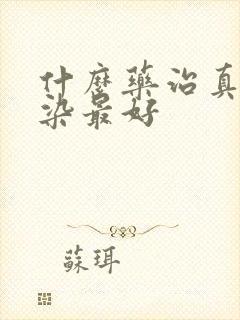 什麼藥治真
染最好
蘇珥